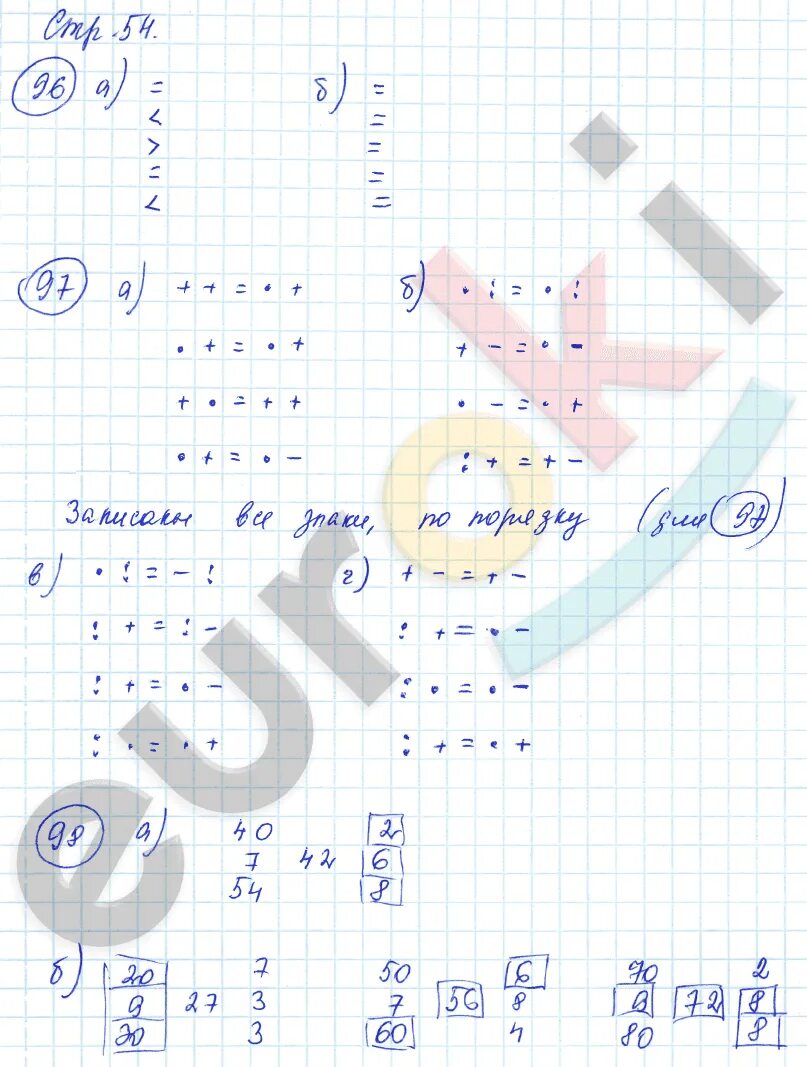 Стр. 54.
96 а) = б) =
< =
> =
= =
< =
97 а) + + = · + б) · : = · :
· + = · + + - = · -
+ · = + + · - = · +
· + = · - : + = + -
Записаны все знаки, по порядку (для 97)
в) · : = - : г) + - = + -
: + = : - : + = · -
: + = · - : · = · -
: · = · + : + = · +
98 а) 40 2
7 42 6
54 8
б) 20 7 50 6 70 2
9 27 3 7 56 8 9 72 8
20 3 60 4 80 8
euroki